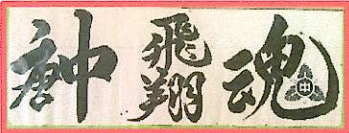 中 飛翔 魂
中